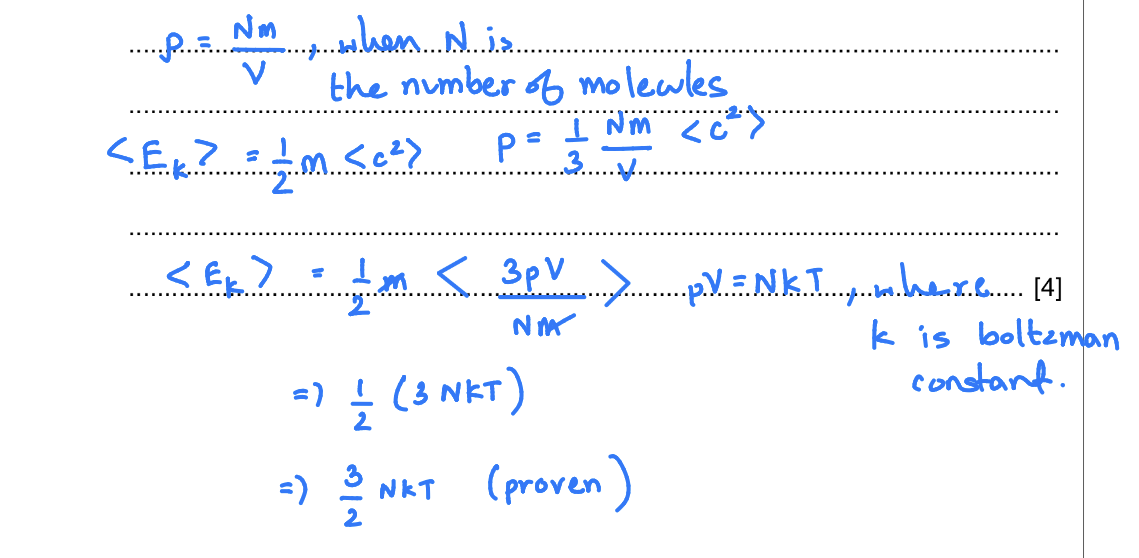 ρ = Nm/V , when N is
the number of molecules
<E_k> = 1/2 m <c²>    p = 1/3 Nm/V <c²>
<E_k> = 1/2 m < 3pV/Nm >    pV = NkT , where [4]
k is boltzman
constant.
=> 1/2 (3 NkT)
=> 3/2 NkT (proven)